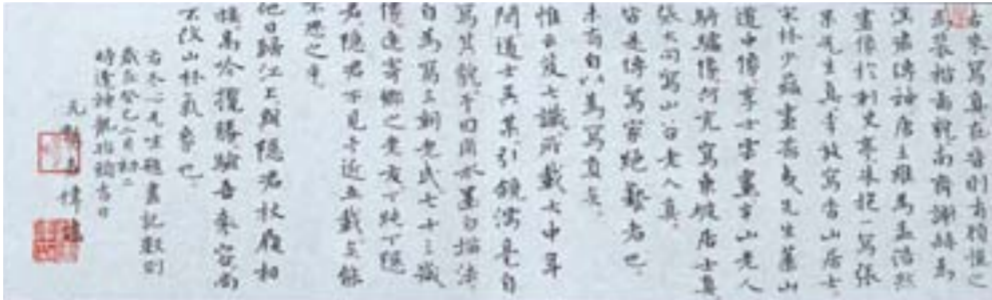 古來寫真在晉則有顧愷之
為裴楷圖貌南齊謝赫為
濮肅傳神唐王維為孟浩然
畫像於刺史亭朱抱一寫張
果先生真李放寫香山居士
宋林少蘊畫希夷先生華山
道中像李士雲畫半山老人
騎驢像何充寫東坡居士真
張大同寫山谷老人真
皆是傳寫家絕藝者也
未有自以為寫真者
惟雲笈七籤所載大中年
間道士吳某引鏡濡毫自
寫其貌余因用水墨白描法
自為寫三朝老民七十三歲
像遠寄鄉之老友丁鈍丁隱
君隱君不見余近五載矣能
不思之乎
他日歸江上與隱君杖履相
接高吟攬勝驗吾衰容尚
不改山林氣象也
右冬心先生題畫記數則
歲在癸巳二月初二
時逢神龍抬頭吉日